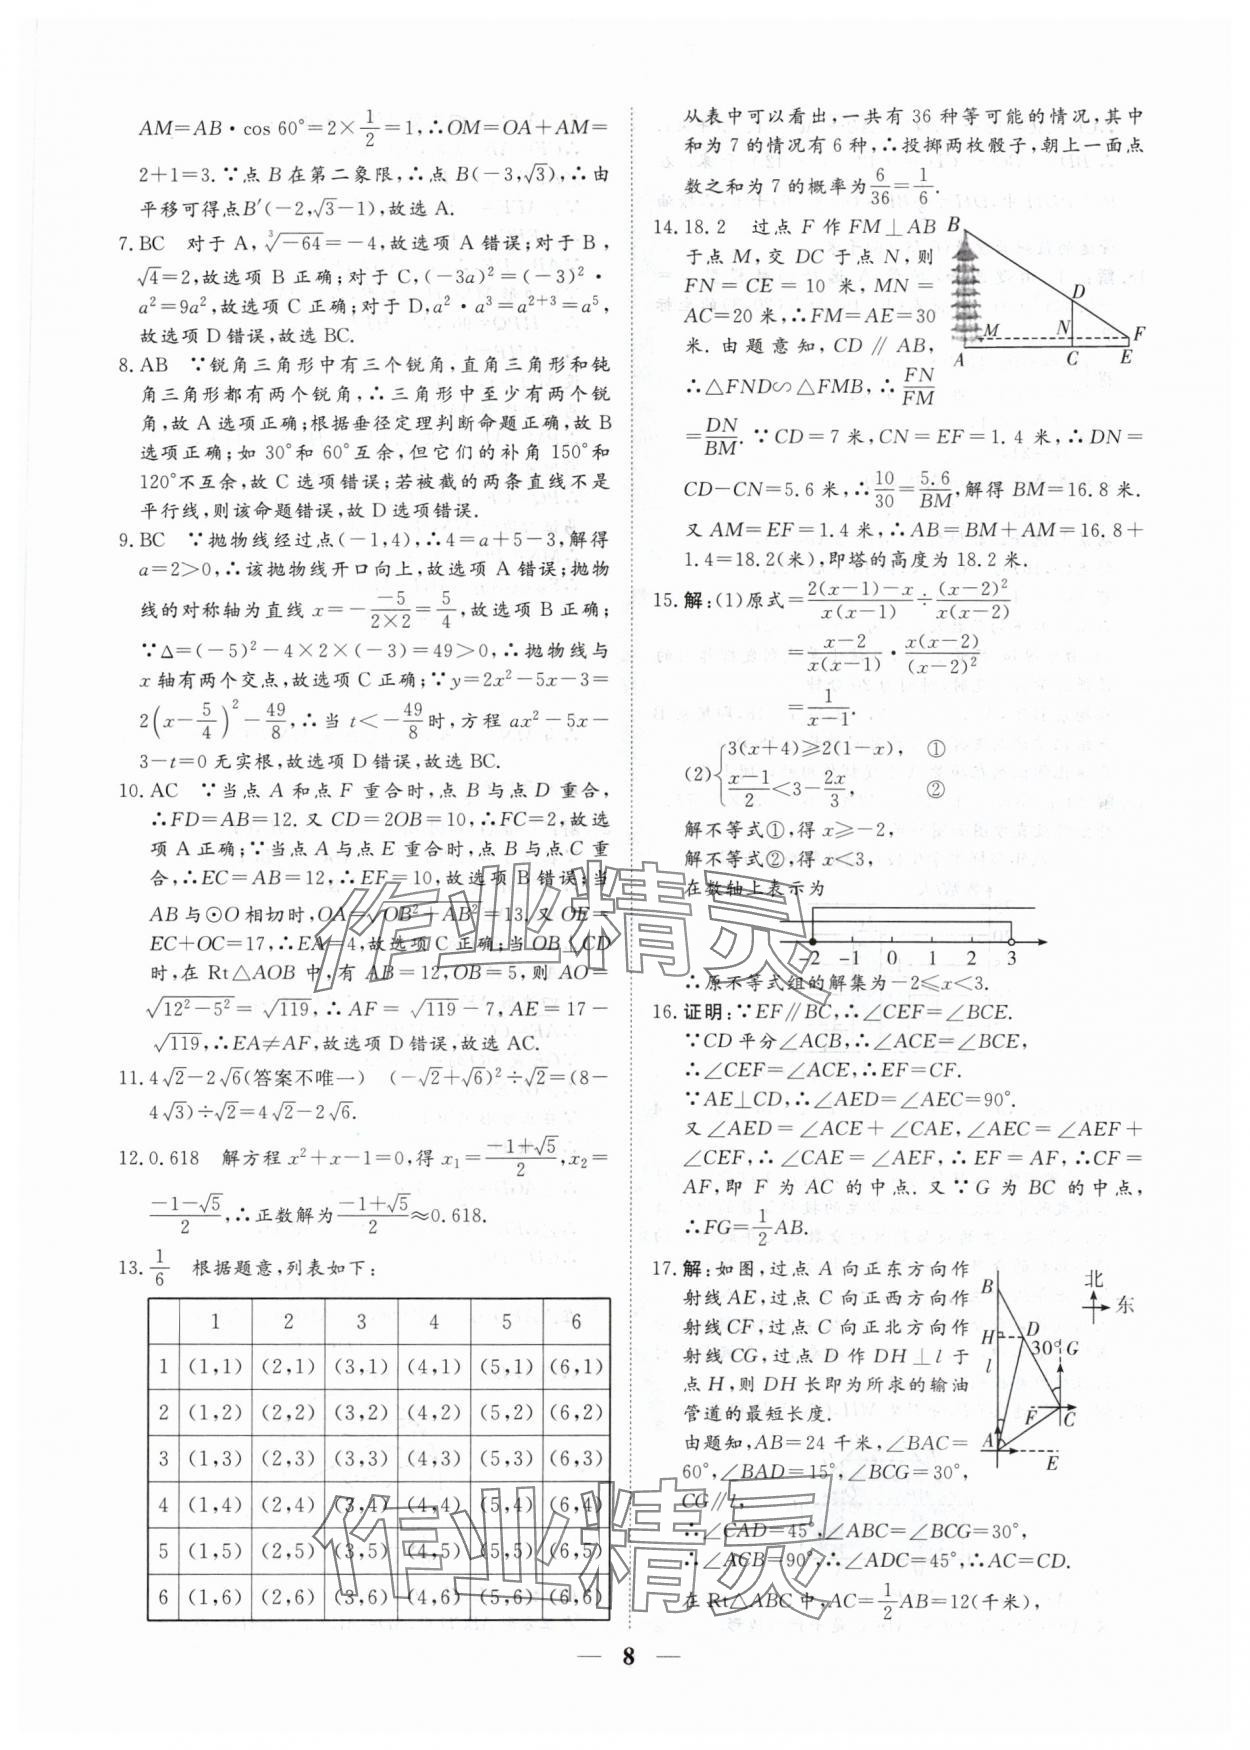 AM=AB·cos 60°=2×1/2=1,∴OM=OA+AM=
2+1=3.∵点 B 在第二象限,∴点 B(-3,√3),∴由
平移可得点B′(-2,√3-1),故选 A.
7. BC 对于 A,³√-64=-4,故选项 A 错误;对于 B,
√4=2,故选项 B 正确;对于 C,(-3a)²=(-3)²·
a²=9a²,故选项 C 正确;对于 D,a²·a³=a²⁺³=a⁵,
故选项 D 错误,故选 BC.
8. AB ∵锐角三角形中有三个锐角,直角三角形和钝
角三角形都有两个锐角,∴三角形中至少有两个锐
角,故 A 选项正确;根据垂径定理判断命题正确,故 B
选项正确;如 30°和 60°互余,但它们的补角 150°和
120°不互余,故 C 选项错误;若被截的两条直线不是
平行线,则该命题错误,故 D 选项错误.
9. BC ∵抛物线经过点(-1,4),∴4=a+5-3,解得
a=2>0,∴该抛物线开口向上,故选项 A 错误;抛物
线的对称轴为直线 x=-(-5)/(2×2)=5/4,故选项 B 正确;
∵Δ=(-5)²-4×2×(-3)=49>0,∴抛物线与
x 轴有两个交点,故选项 C 正确;∵y=2x²-5x-3=
2(x-5/4)²-49/8,∴当 t<-49/8时,方程 ax²-5x-
3-t=0 无实根,故选项 D 错误,故选 BC.
10. AC ∵当点 A 和点 F 重合时,点 B 与点 D 重合,
∴FD=AB=12.又 CD=2OB=10,∴FC=2,故选
项 A 正确;∵当点 A 与点 E 重合时,点 B 与点 C 重
合,∴EC=AB=12,∴EF=10,故选项 B 错误;当
AB 与⊙O 相切时,OA=√(OB²+AB²)=13.又 OE=
EC+OC=17,∴EA=4,故选项 C 正确;当 OB⊥CD
时,在 Rt△AOB 中,有 AB=12,OB=5,则 AO=
√(12²-5²)=√119,∴AF=√119-7,AE=17-
√119,∴EA≠AF,故选项 D 错误,故选 AC.
11. 4√2-2√6(答案不唯一) (-√2+√6)²÷√2=(8-
4√3)÷√2=4√2-2√6.
12. 0.618 解方程 x²+x-1=0,得 x₁=(-1+√5)/2,x₂=
(-1-√5)/2,∴正数解为(-1+√5)/2≈0.618.
13. 1/6 根据题意,列表如下:
1 2 3 4 5 6
1 (1,1) (2,1) (3,1) (4,1) (5,1) (6,1)
2 (1,2) (2,2) (3,2) (4,2) (5,2) (6,2)
3 (1,3) (2,3) (3,3) (4,3) (5,3) (6,3)
4 (1,4) (2,4) (3,4) (4,4) (5,4) (6,4)
5 (1,5) (2,5) (3,5) (4,5) (5,5) (6,5)
6 (1,6) (2,6) (3,6) (4,6) (5,6) (6,6)
从表中可以看出,一共有 36 种等可能的情况,其中
和为 7 的情况有 6 种,∴投掷两枚骰子,朝上一面点
数之和为 7 的概率为6/36=1/6.
14. 18.2 过点 F 作 FM⊥AB
于点 M,交 DC 于点 N,则
FN=CE=10 米,MN=
AC=20 米,∴FM=AE=30
米.由题意知,CD∥AB,
∴△FND∽△FMB,∴FN/FM
=DN/BM.∵CD=7 米,CN=EF=1.4 米,∴DN=
CD-CN=5.6 米,∴10/30=5.6/BM,解得 BM=16.8 米.
又 AM=EF=1.4 米,∴AB=BM+AM=16.8+
1.4=18.2(米),即塔的高度为 18.2 米.
B
D
M
N
F
A
C
E
15. 解:(1)原式=(2(x-1)-x)/(x(x-1))÷(x-2)²/(x(x-2))
=(x-2)/(x(x-1))·x(x-2)/(x-2)²
=1/(x-1).
(2){3(x+4)≥2(1-x), ①
(x-1)/2<3-2x/3, ②
解不等式①,得 x≥-2,
解不等式②,得 x<3,
在数轴上表示为
-2 -1 0 1 2 3
∴原不等式组的解集为-2≤x<3.
16. 证明:∵EF∥BC,∴∠CEF=∠BCE.
∵CD 平分∠ACB,∴∠ACE=∠BCE,
∴∠CEF=∠ACE,∴EF=CF.
∵AE⊥CD,∴∠AED=∠AEC=90°.
又∠AED=∠ACE+∠CAE,∠AEC=∠AEF+
∠CEF,∴∠CAE=∠AEF,∴EF=AF,∴CF=
AF,即 F 为 AC 的中点.又∵G 为 BC 的中点,
∴FG=1/2AB.
17. 解:如图,过点 A 向正东方向作
射线 AE,过点 C 向正西方向作
射线 CF,过点 C 向正北方向作
射线 CG,过点 D 作 DH⊥l 于
点 H,则 DH 长即为所求的输油
管道的最短长度.
由题知,AB=24 千米,∠BAC=
60°,∠BAD=15°,∠BCG=30°,
CG∥l,
∴∠CAD=45°,∠ABC=∠BCG=30°,
∴∠ACB=90°,∴∠ADC=45°,∴AC=CD.
在 Rt△ABC 中,AC=1/2AB=12(千米),
北
东
B
H
D
l
30°
G
F
C
A
E
作业精灵
作业精灵
8